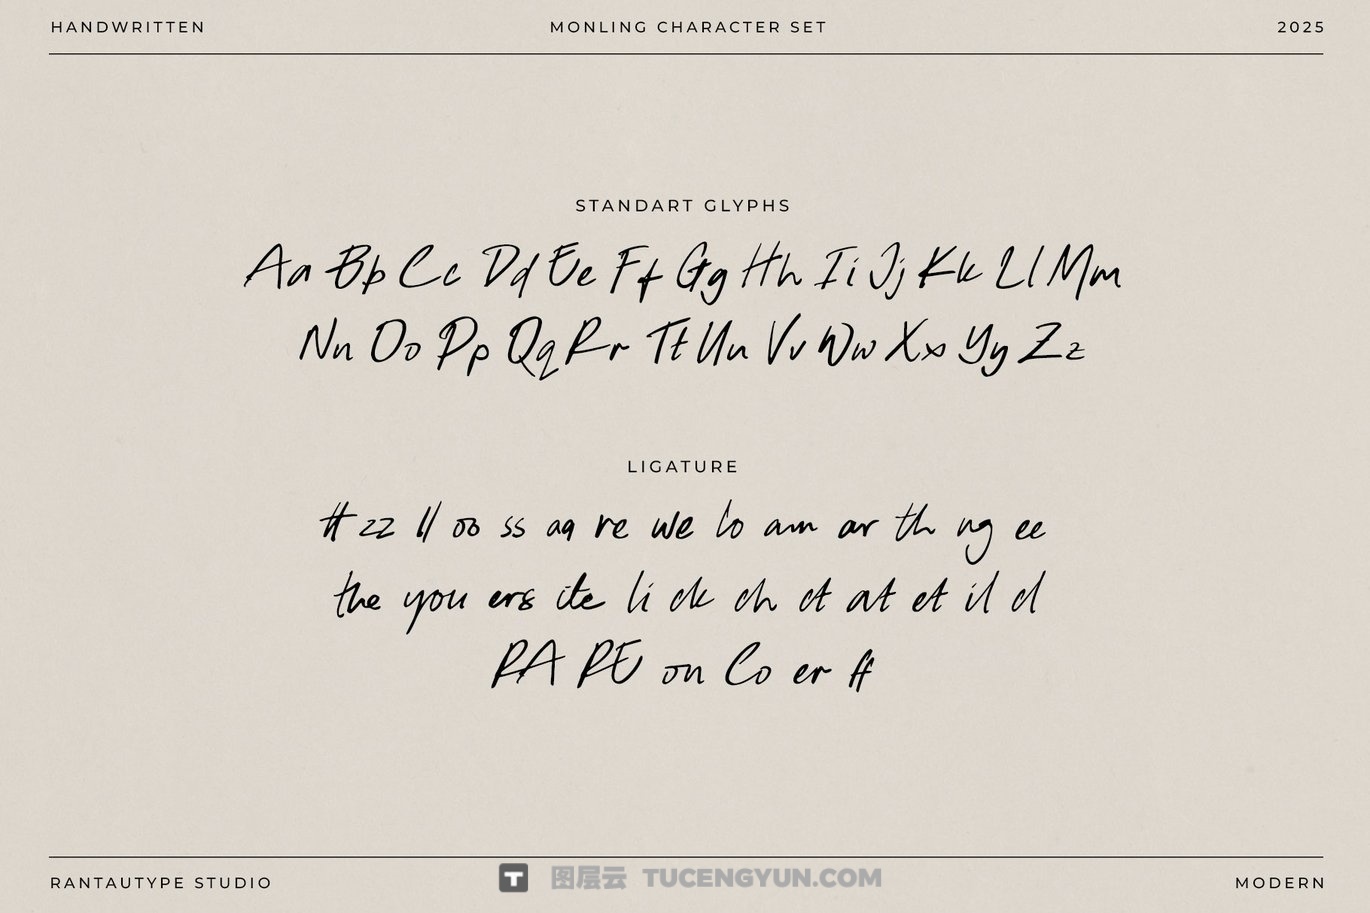 HANDWRITTEN MONLING CHARACTER SET 2025
STANDART GLYPHS
Aa Bb Cc Dd Ee Ff Gg Hh Ii Jj Kk Ll Mm
Nn Oo Pp Qq Rr Tt Uu Vv Ww Xx Yy Zz
LIGATURE
tt zz ll oo ss aa re we lo am ar th ng ee
the you ers ite li ck ch ct at et il cl
RA RE on Co er ff
RANTAUTYPE STUDIO T 图层云 TUCENGYUN.COM MODERN